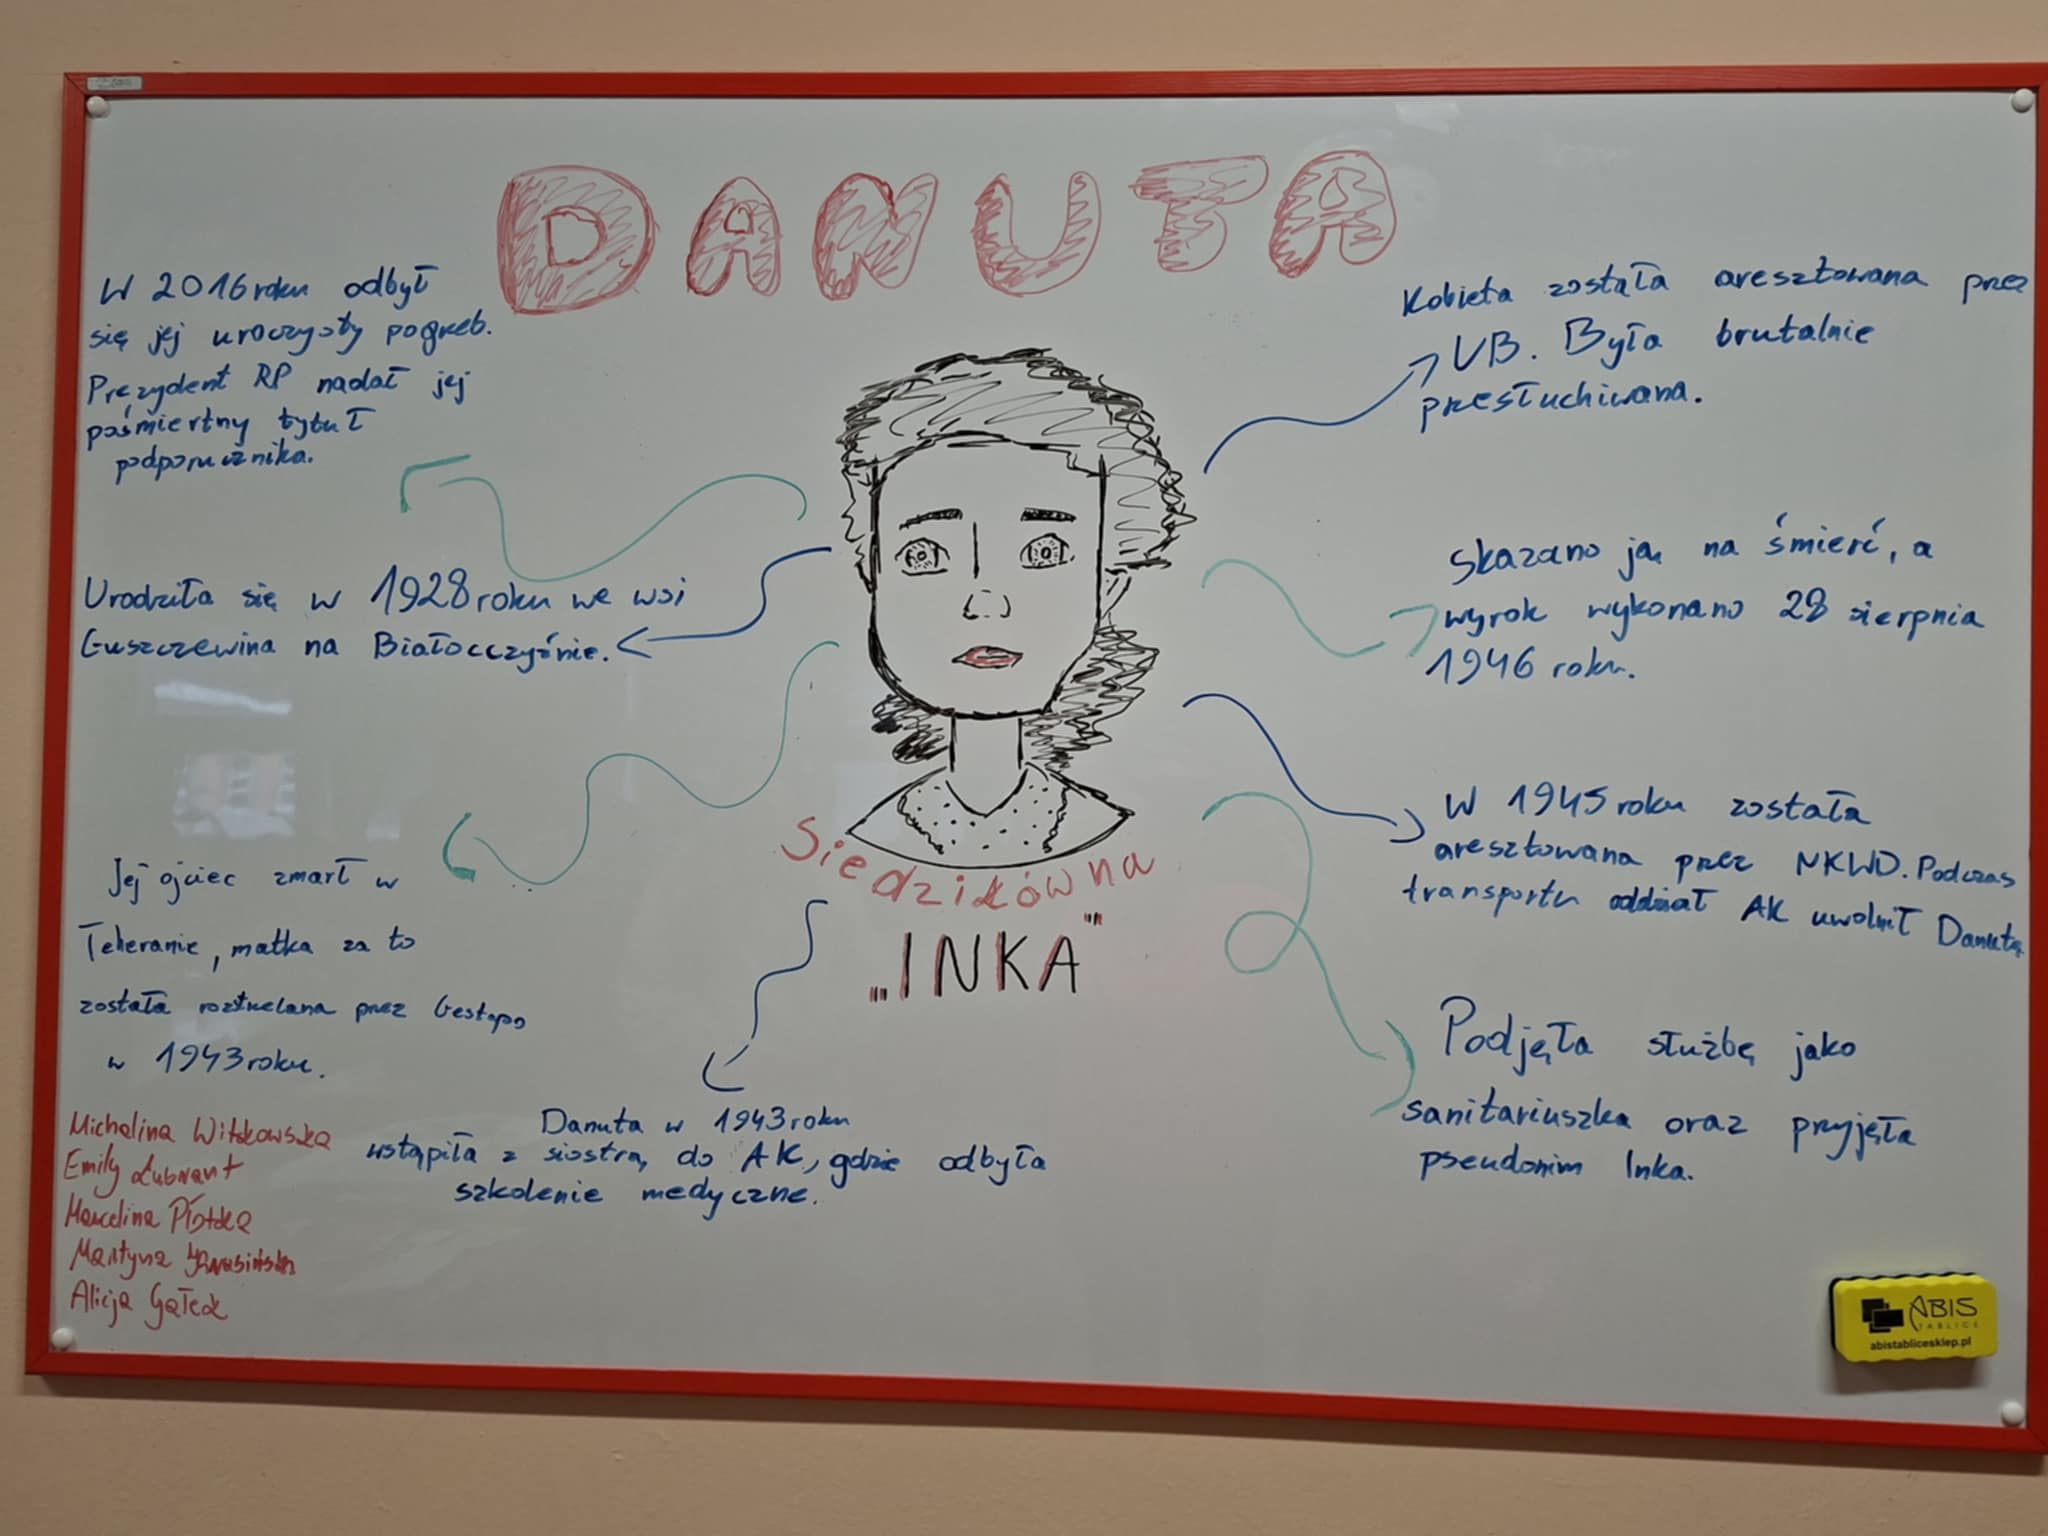 DANUTA
W 2016 roku odbył
się jej uroczysty pogrzeb.
Prezydent RP nadał jej
pośmiertny tytuł
podporucznika.
Urodziła się w 1928 roku we wsi
Guszczewina na Białocczyźnie.
Jej ojciec zmarł w
Teheranie, matka za to
została rozstrzelana przez Gestapo
w 1943 roku.
Danuta w 1943 roku
wstąpiła z siostrą do AK, gdzie odbyła
szkolenie medyczne.
Siedzikówna
„INKA”
Kobieta została aresztowana przez
UB. Była brutalnie
przesłuchiwana.
Skazano ją na śmierć, a
wyrok wykonano 28 sierpnia
1946 roku.
W 1945 roku została
aresztowana przez NKWD. Podczas
transportu oddział AK uwolnił Danutę.
Podjęła służbę jako
sanitariuszka oraz przyjęła
pseudonim Inka.
Michalina Witkowska
Emily
Marcelina
Martyna
Alicja Gałek
ABIS
TABLICE
abistablicesklep.pl